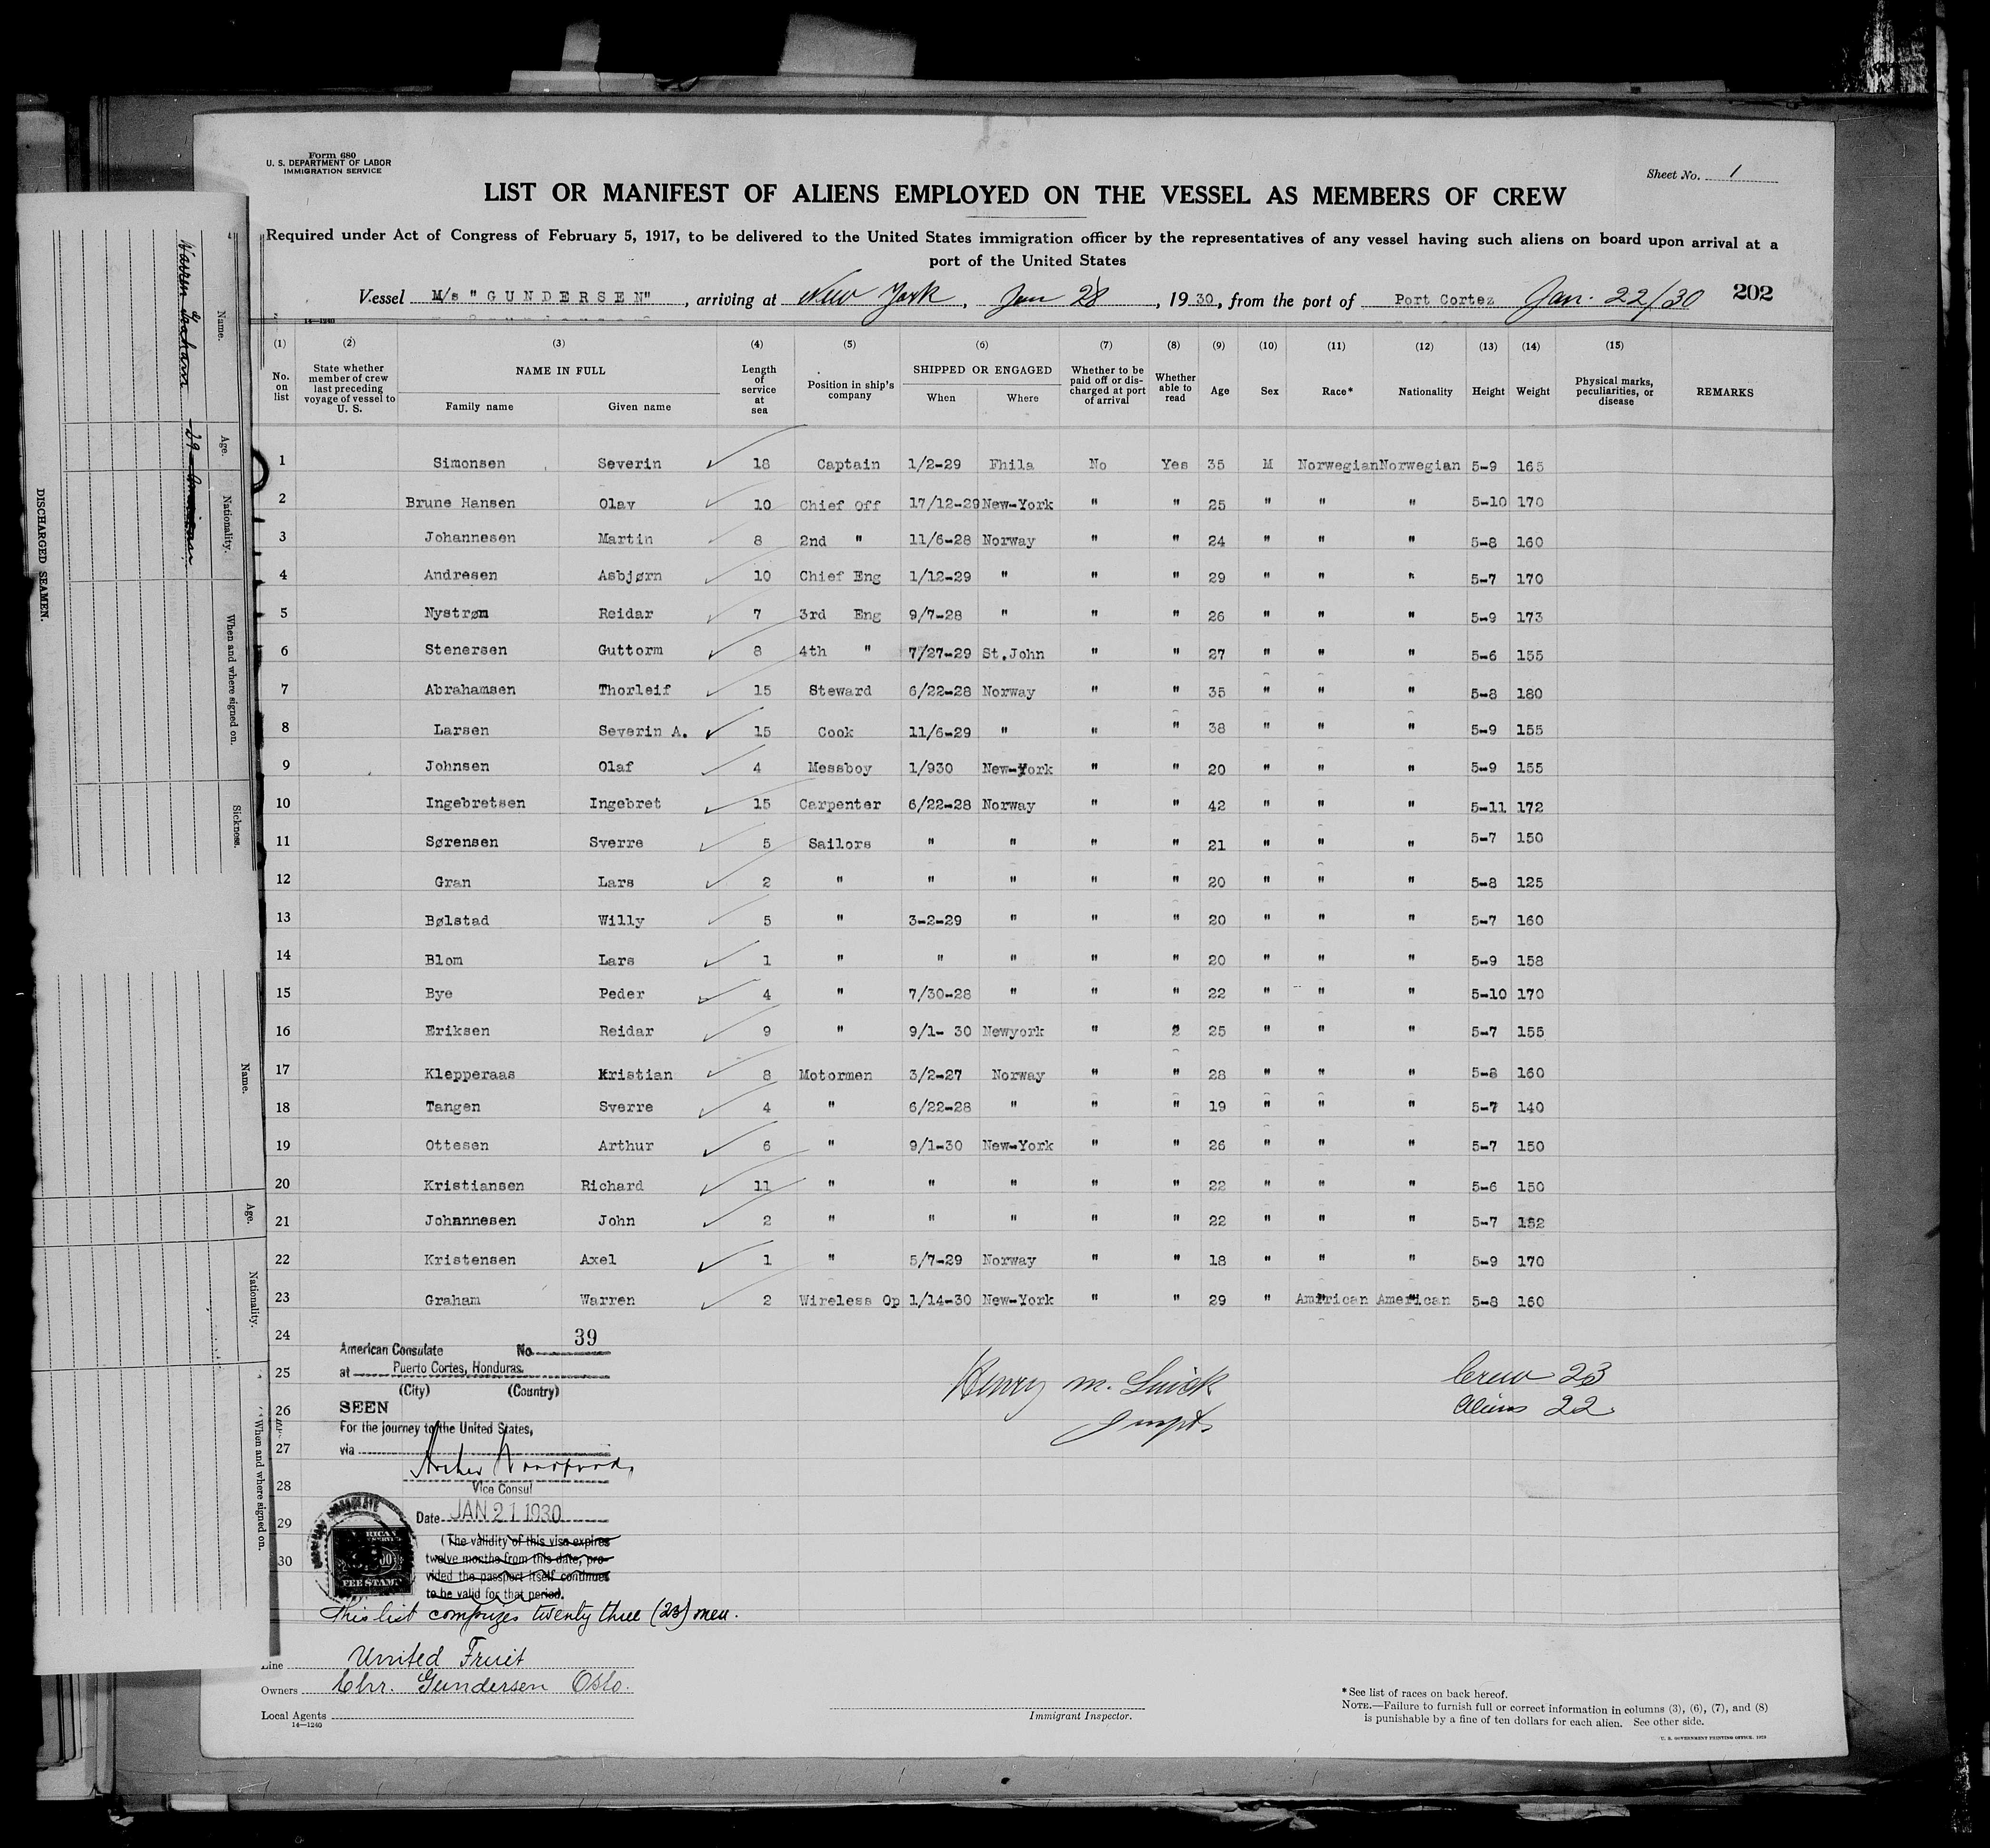 Form 680
U. S. DEPARTMENT OF LABOR
IMMIGRATION SERVICE
Sheet No. 1
LIST OR MANIFEST OF ALIENS EMPLOYED ON THE VESSEL AS MEMBERS OF CREW
Required under Act of Congress of February 5, 1917, to be delivered to the United States immigration officer by the representatives of any vessel having such aliens on board upon arrival at a
port of the United States
Vessel M/s "GUNDERSEN", arriving at New York, Jan 28, 1930, from the port of Port Cortez Jan. 22/30 202
14—1240
(1) (2) (3) (4) (5) (6) (7) (8) (9) (10) (11) (12) (13) (14) (15)
No. on list State whether member of crew last preceding voyage of vessel to U. S. NAME IN FULL Family name Given name Length of service at sea Position in ship's company SHIPPED OR ENGAGED When Where Whether to be paid off or discharged at port of arrival Whether able to read Age Sex Race* Nationality Height Weight Physical marks, peculiarities, or disease REMARKS
1 Simonsen Severin 18 Captain 1/2-29 Fhila No Yes 35 M Norwegian Norwegian 5-9 165
2 Brune Hansen Olav 10 Chief Off 17/12-29 New-York " " 25 " " " 5-10 170
3 Johannesen Martin 8 2nd " 11/6-28 Norway " " 24 " " " 5-8 160
4 Andresen Asbjørn 10 Chief Eng 1/12-29 " " " 29 " " " 5-7 170
5 Nystrøm Reidar 7 3rd Eng 9/7-28 " " " 26 " " " 5-9 173
6 Stenersen Guttorm 8 4th " 7/27-29 St.John " " 27 " " " 5-6 155
7 Abrahamsen Thorleif 15 Steward 6/22-28 Norway " " 35 " " " 5-8 180
8 Larsen Severin A. 15 Cook 11/6-29 " " " 38 " " " 5-9 155
9 Johnsen Olaf 4 Messboy 1/930 New-York " " 20 " " " 5-9 155
10 Ingebretsen Ingebret 15 Carpenter 6/22-28 Norway " " 42 " " " 5-11 172
11 Sørensen Sverre 5 Sailors " " " " 21 " " " 5-7 150
12 Gran Lars 2 " " " " " 20 " " " 5-8 125
13 Bølstad Willy 5 " 3-2-29 " " " 20 " " " 5-7 160
14 Blom Lars 1 " " " " " 20 " " " 5-9 158
15 Bye Peder 4 " 7/30-28 " " " 22 " " " 5-10 170
16 Eriksen Reidar 9 " 9/1- 30 Newyork " 2 25 " " " 5-7 155
17 Klepperaas Kristian 8 Motormen 3/2-27 Norway " " 28 " " " 5-8 160
18 Tangen Sverre 4 " 6/22-28 " " " 19 " " " 5-7 140
19 Ottesen Arthur 6 " 9/1-30 New-York " " 26 " " " 5-7 150
20 Kristiansen Richard 11 " " " " " 22 " " " 5-6 150
21 Johannesen John 2 " " " " " 22 " " " 5-7 152
22 Kristensen Axel 1 " 5/7-29 Norway " " 18 " " " 5-9 170
23 Graham Warren 2 Wireless Op 1/14-30 New-York " " 29 " American American 5-8 160
24
25
26
27
28
29
30
American Consulate No. 39
at Puerto Cortes, Honduras.
(City) (Country)
SEEN
For the journey to the United States,
via
Vice Consul
Date JAN 21 1930
(The validity of this visa expires
twelve months from this date, pro-
vided the passport itself continues
to be valid for that period.
FEE STAMP
This list comprizes twenty three (23) men.
Henry M.
Crew 23
Aliens 22
Line United Fruit
Owners Chr. Gundersen Oslo.
Local Agents
14—1240
Immigrant Inspector.
*See list of races on back hereof.
NOTE.—Failure to furnish full or correct information in columns (3), (6), (7), and (8)
is punishable by a fine of ten dollars for each alien. See other side.
U. S. GOVERNMENT PRINTING OFFICE. 1923
DISCHARGED SEAMEN.
Name. Age. Nationality. When and where signed on. Sickness.
Warren Graham 29 American
Name. Age. Nationality. When and where signed on.